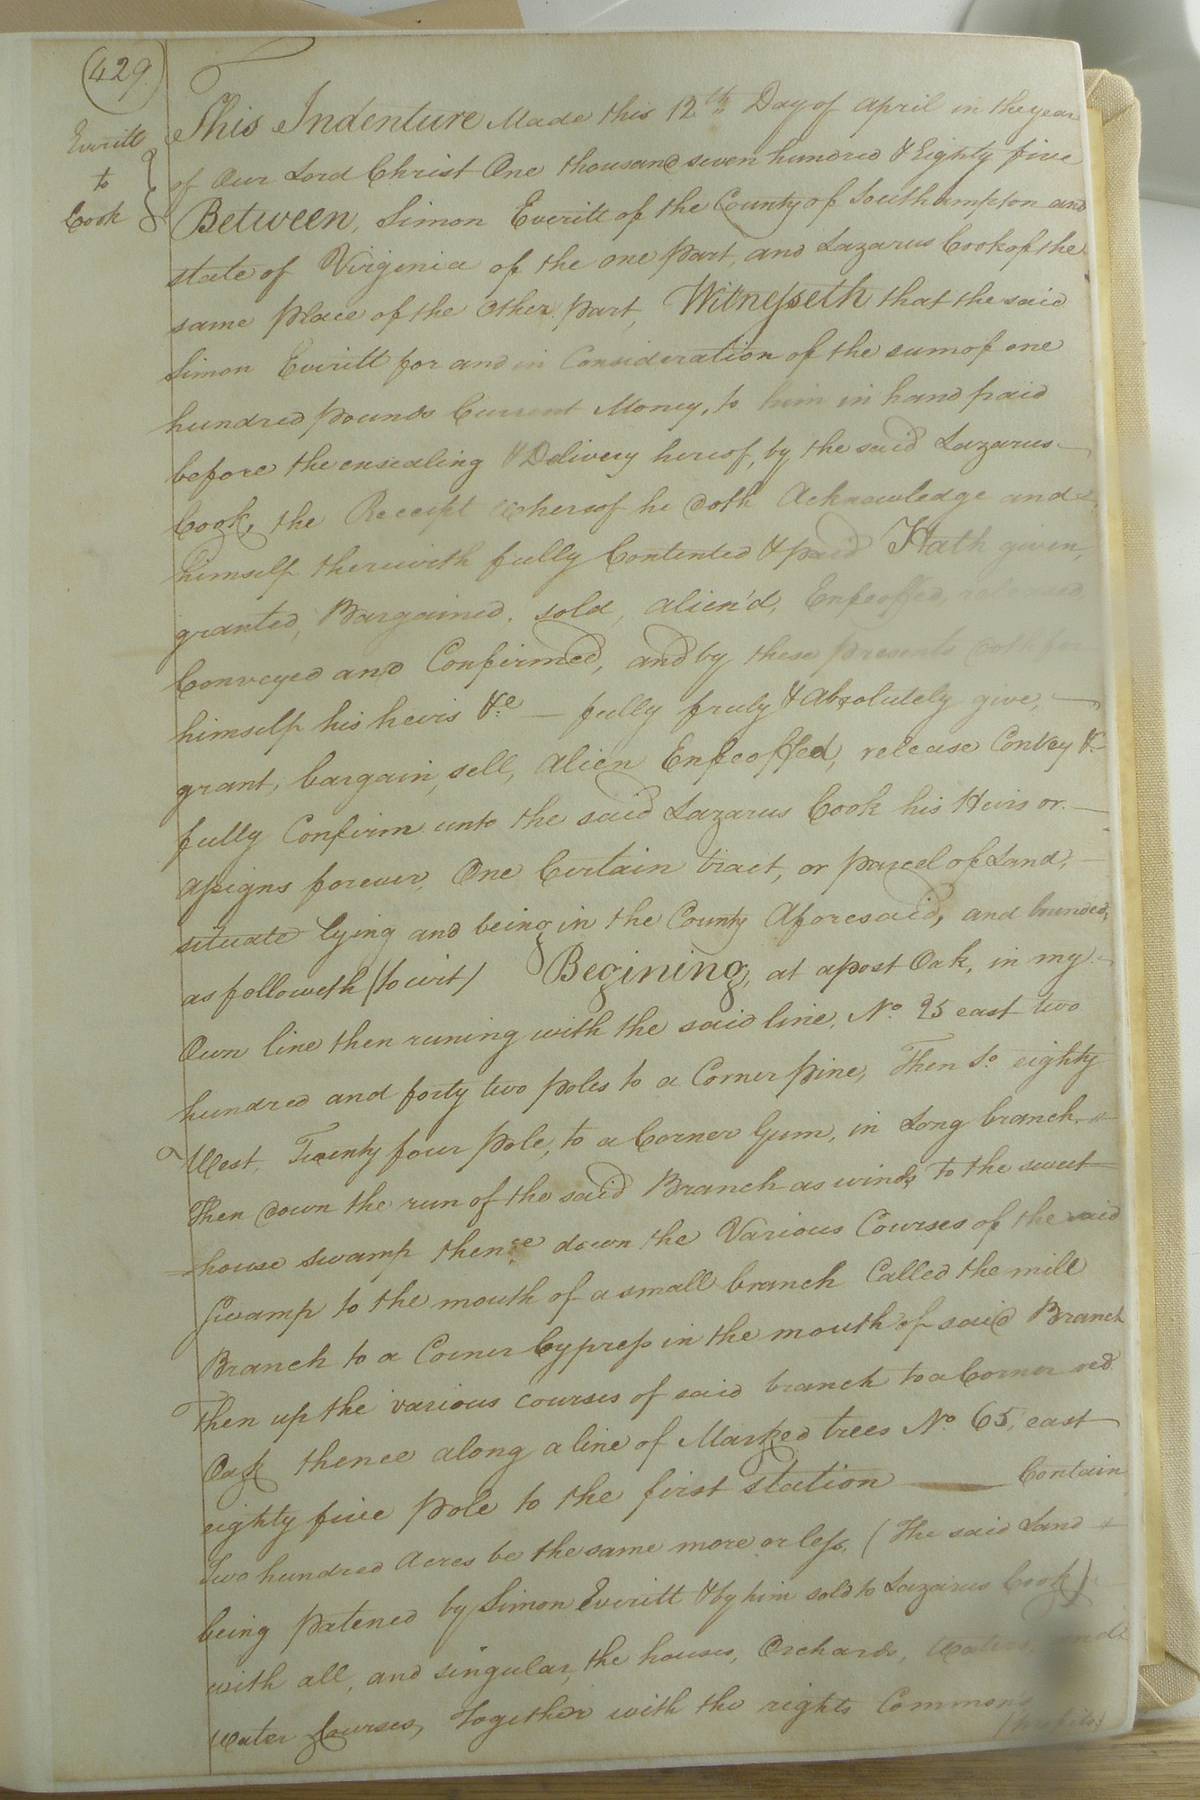 (429)
Everitt
to
Cook
This Indenture Made this 12th Day of April in the year
of Our Lord Christ One thousand seven hundred & Eighty five
Between, Simon Everitt of the County of Southampton and
state of Virginia of the one part, and Lazarus Cook of the
same place of the other part, Witnesseth that the said
Simon Everitt for and in Consideration of the sum of one
hundred pounds Current Money, to him in hand paid
before the ensealing & Delivery hereof, by the said Lazarus
Cook, the Receipt whereof he doth Acknowledge and
himself therewith fully Contented & paid Hath given,
granted, Bargained, sold, alien'd, Enfeoffed, released,
Conveyed and Confirmed, and by these presents doth for
himself his heirs &c — fully fruly & Absolutely give,
grant, bargain, sell, Alien Enfeoffed, release Convey &
fully Confirm unto the said Lazarus Cook his Heirs or
assigns forever, One Certain tract, or parcel of Land,
situate lying and being in the County Aforesaid, and bounded,
as followeth (to wit) Begining, at a post Oak, in my
Own line then runing with the said line, No. 25 east two
hundred and forty two poles to a Corner pine, Then So. eighty
West, Twenty four pole, to a Corner Gum, in Long branch,
Then down the run of the said Branch as winds to the sweet
house swamp thence down the Various Courses of the said
Swamp to the mouth of a small branch Called the mill
Branch to a Corner Cypress in the mouth of said Branch
Then up the various courses of said branch to a Corner red
Oak thence along a line of Marked trees No. 65, east
eighty five pole to the first station — Contain
Two hundred Acres be the same more or less, (The said Land
being patened by Simon Everitt & by him sold to Lazarus Cook)
with all, and singular, the houses, Orchards, Waters, and
Water Courses, Together with the rights Commons
(profits)